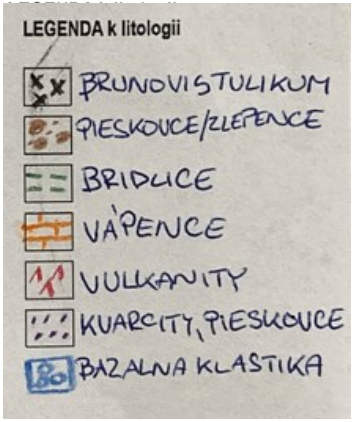 LEGENDA k litologii
BRUNOVISTULIKUM
PIESKOUCE/ZLEPENCE
BRIDLICE
VÁPENCE
VULKANITY
KVARCITY, PIESKOVCE
BAZALNA KLASTIKA